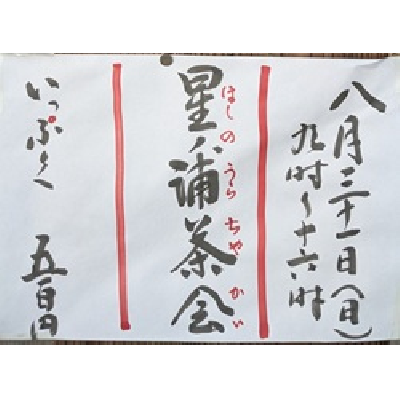 八月三十一日(日)
九時〜十六時
星ノ浦茶会
ほしのうらちゃかい
いっぷく 五百円